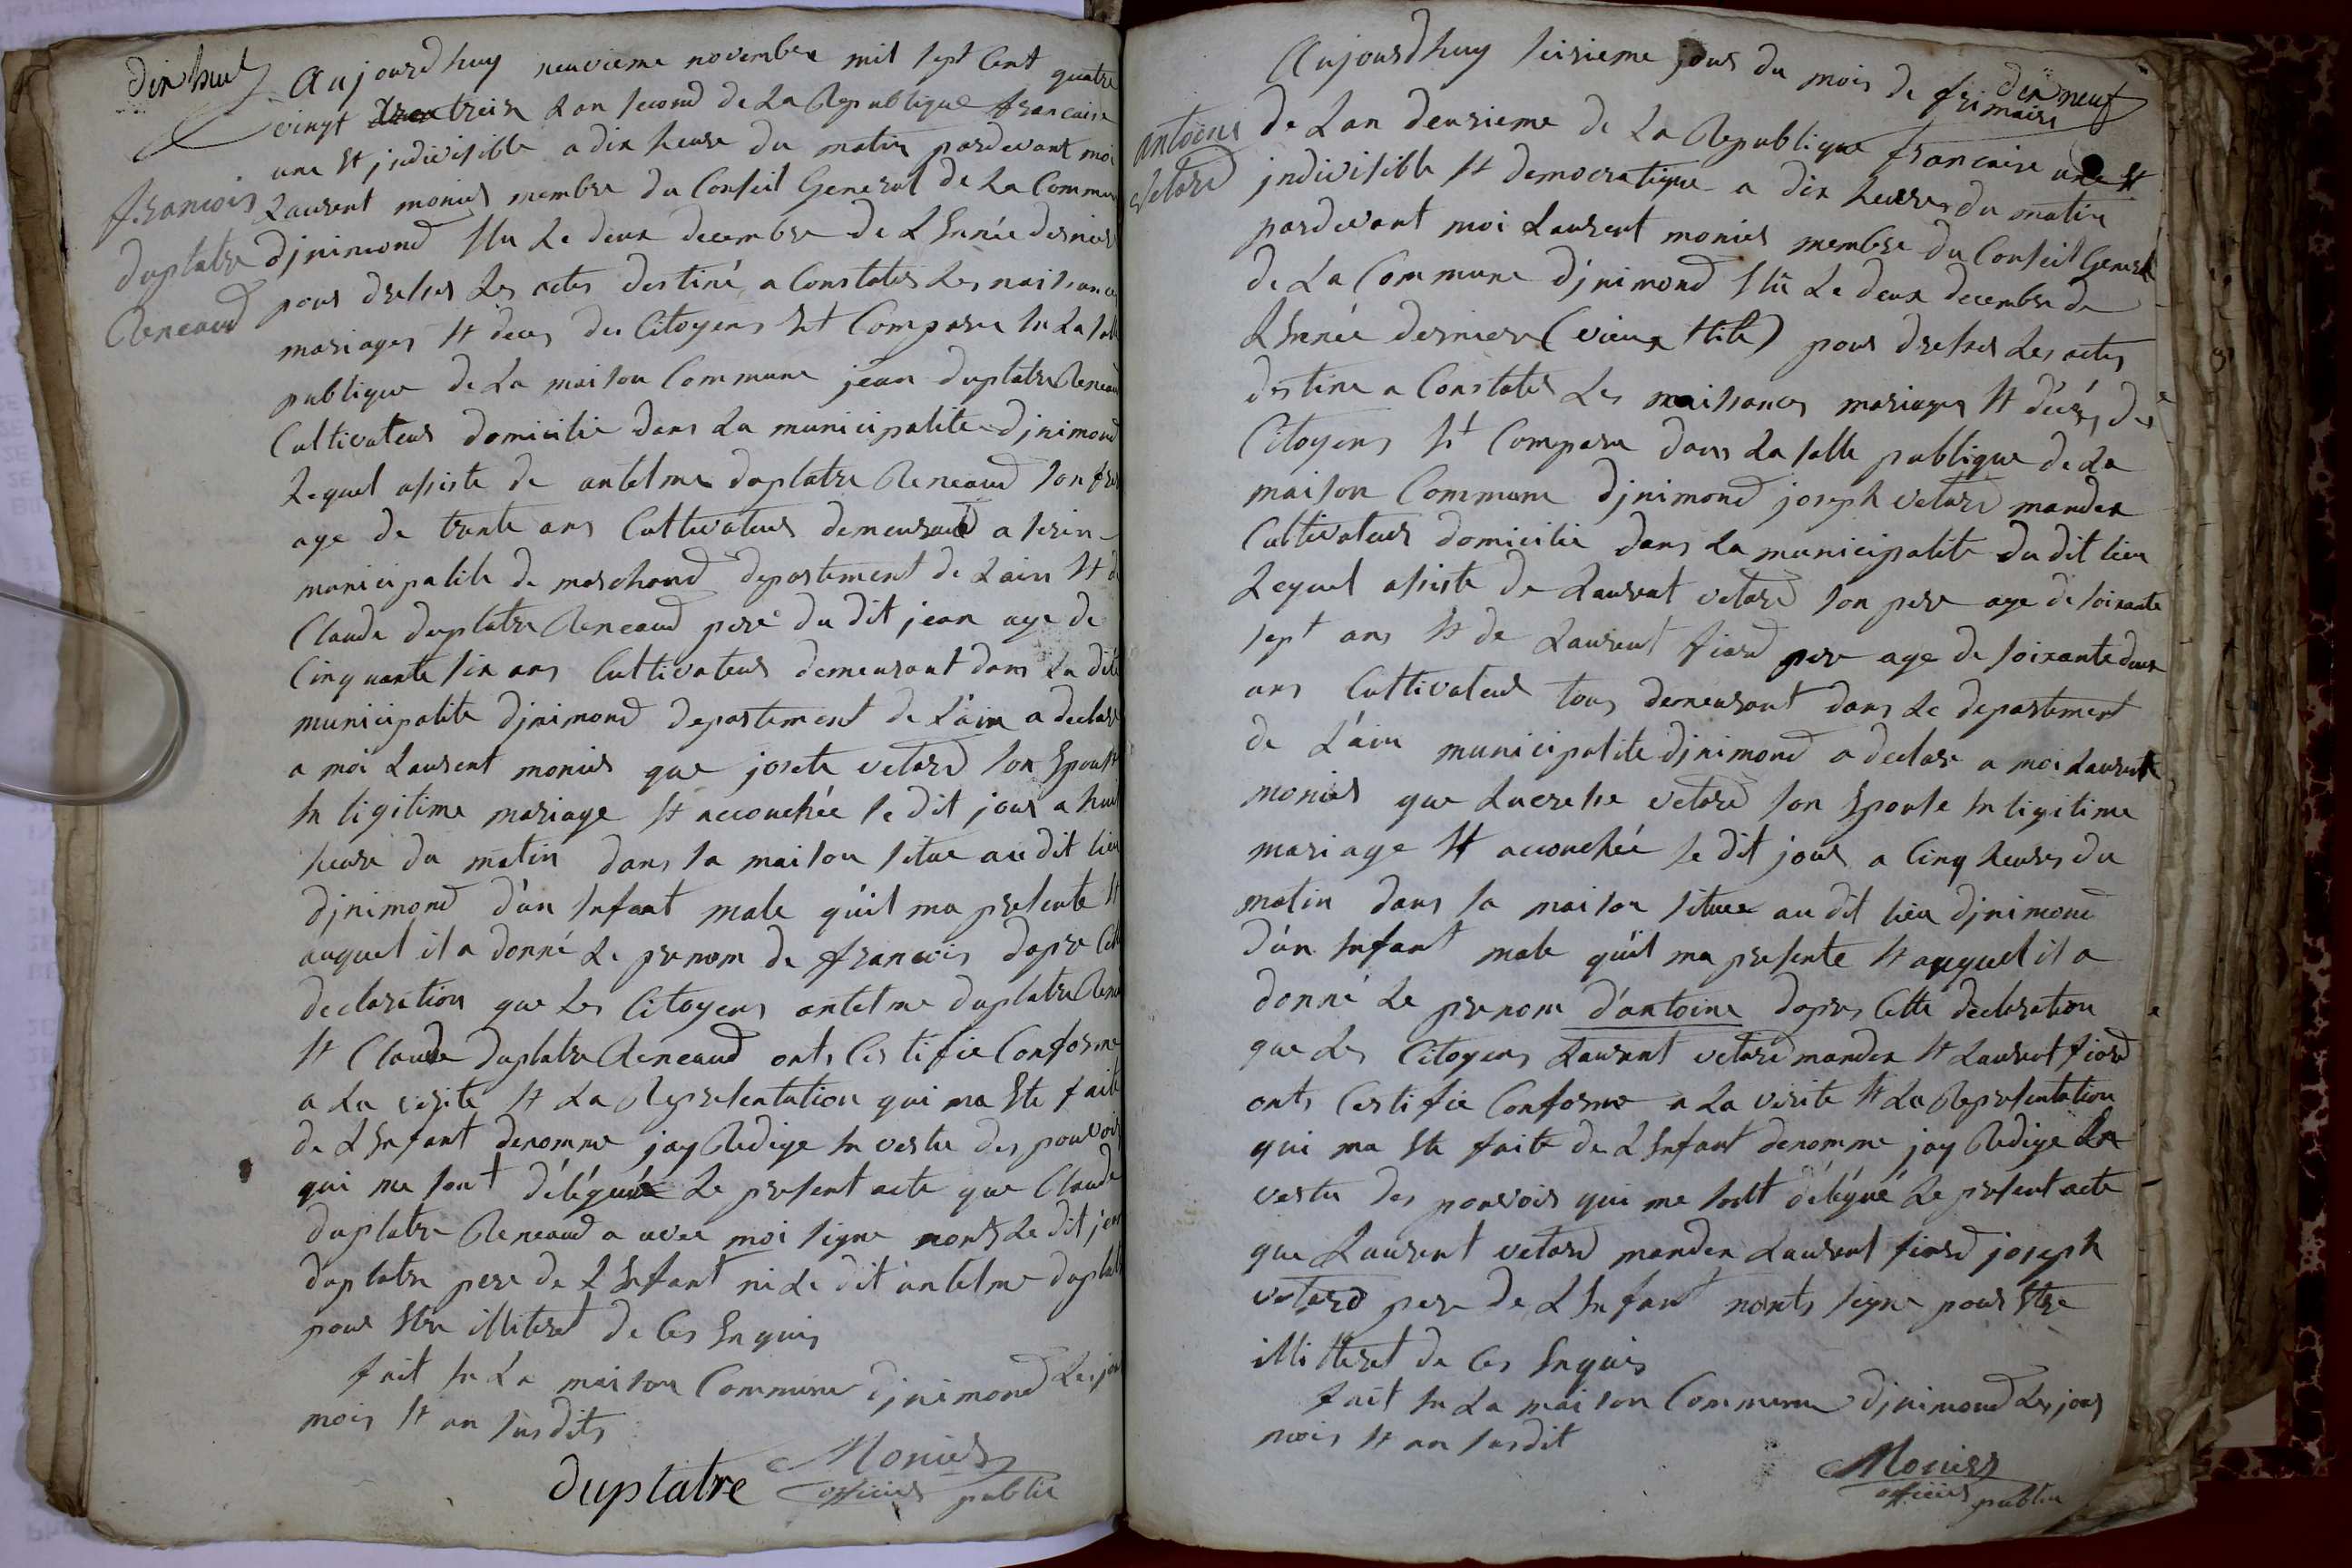 dix huit
Aujourdhuy neuvieme novembre mil sept cent quatre
vingt treize Lan second de La Republique francaise
une et jndivisible a dix heure du matin pardevant moi
Laurent monier membre du Conseil General de La Commune
djnimond élu Le deux decembre de L'année dernier
pour dresser Les actes destiné a Constater Les naissances
mariages et deces des Citoyens est Comparu en La salle
publique de La maison Commune jean duplatre Reneaud
Cultivateur domicilie dans La municipalite djnimond
Lequel assiste de antelme duplatre Reneaud son frere
age de trente ans Cultivateur demeurant a serin
municipalite de marchand departement de Lain et de
Claude duplatre Reneaud pere du dit jean age de
Cinquante six ans Cultivateur demeurant dans La dite
municipalite djnimond departement de L'ain a declare
a moi Laurent monier que josete vetard son Epouse
en ligitime mariage et accouchée le dit jour a huit
heure du matin dans sa maison situe au dit lieu
djnimond d'un enfant male quil ma presente et
auquel il a donné Le prenom de francois dapre Cette
declaration que Les Citoyens antelme duplatre Reneaud
et Claude duplatre Reneaud onts Certifie Conforme
a La verite et La Representation qui ma Ete faite
de L'Enfant denomme jay Redige en vertu des pouvoirs
qui me sont délégué Le present acte que Claude
duplatre Reneaud a avec moi signe nonts Le dit jean
duplatre pere de L'Enfant ni Le dit antelme duplatre
pour Etre illiteret de Ces Enquis
fait en La maison Commune djnimond Les jour
mois et an susdits
duplatre Monier
officier public
francois
duplatre
Reneaud
dix neuf
Aujourdhuy seisieme jour du mois de frimaire
de Lan deusieme de La Republique francaise une et
jndivisible et democratique a dix heures du matin
pardevant moi Laurent monier membre du Conseil General
de La Commune djnimond élu Le deux decembre de
L'Année derniere (vieux stile) pour dresser Les actes
destine a Constater Les naissances mariages et décés des
Citoyens est Comparu dans La salle publique de La
maison Commune djnimond joseph vetard mander
Cultivateur domicilie dans La municipalite du dit lieu
Lequel assiste de Laurent vetard son pere age de soixante
sept ans et de Laurent fiard pere age de soixante deux
ans Cultivateur tous demeurant dans Le departement
de L'ain municipalite djnimond a declare a moi Laurent
monier que Lucresse vetard son Epouse en ligitime
mariage et accouchée le dit jour a Cinq heures du
matin dans sa maison situee au dit lieu djnimond
d'un enfant male qu'il ma presente et auquel il a
donné Le prenom d'antoine dapres Cette declaration
que Les Citoyens Laurent vetard mander et Laurent fiard
onts Certifie Conforme a La verite et La Representation
qui ma Ete faite de L'Enfant denomme jay Redige en
vertu des pouvoir qui me sont délégué Le present acte
que Laurent vetard mander Laurent fiard joseph
vetard pere de L'Enfant nonts signe pour Etre
illitteret de Ces Enquis
fait en La maison Commune djnimond Les jour
mois et an susdit
Monier
officier public
antoine
vetard